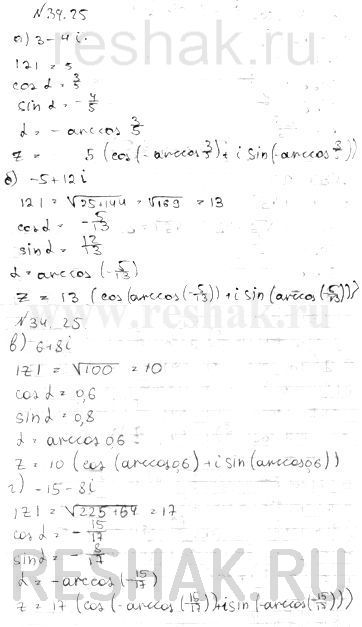 №34.25
а) 3-4i
|z| = 5
cos α = 3/5
sin α = -4/5
α = -arccos 3/5
z = 5 (cos(-arccos 3/5) + i sin(-arccos 3/5))
б) -5+12i
|z| = √25+144 = √169 = 13
cos α = -5/13
sin α = 12/13
α = arccos(-5/13)
z = 13 (cos(arccos(-5/13)) + i sin(arccos(-5/13)))
№34.25
в) 6+8i
|z| = √100 = 10
cos α = 0,6
sin α = 0,8
α = arccos 0,6
z = 10 (cos (arccos 0,6) + i sin(arccos 0,6))
г) -15-8i
|z| = √225+64 = 17
cos α = -15/17
sin α = -8/17
α = -arccos(-15/17)
z = 17 (cos(-arccos(-15/17)) + i sin(-arccos(-15/17)))
reshak.ru
www.reshak.ru
RESHAK.RU